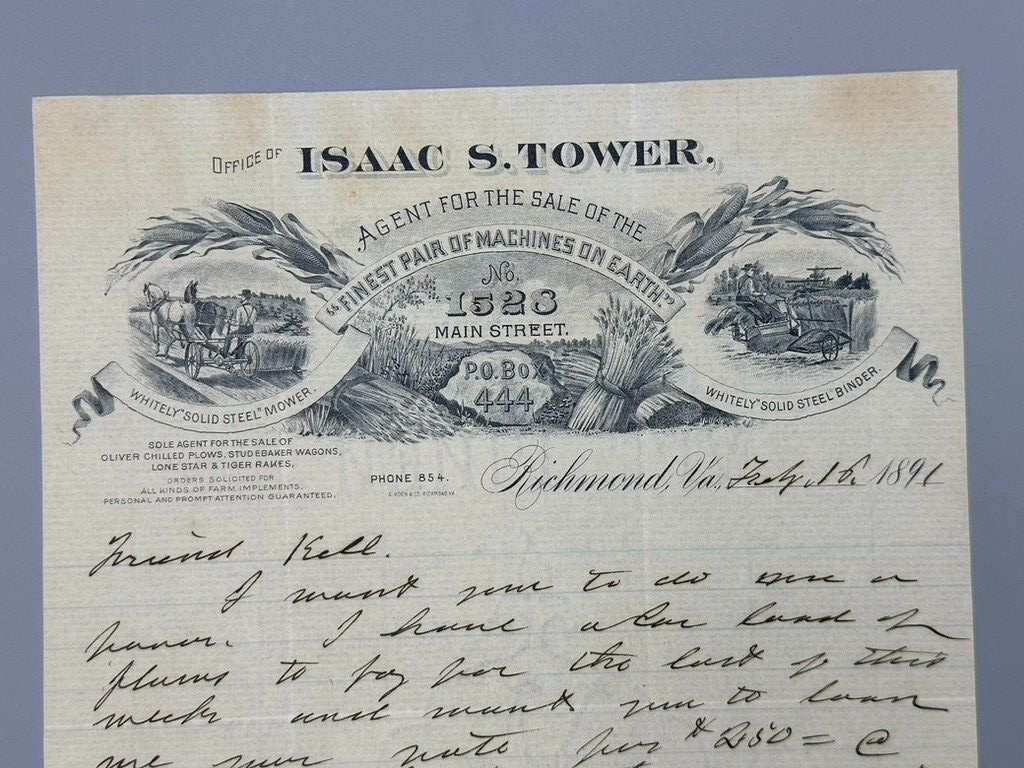 OFFICE OF ISAAC S. TOWER,
AGENT FOR THE SALE OF THE
"FINEST PAIR OF MACHINES ON EARTH"
No.
1528
MAIN STREET.
P.O. BOX
444
WHITELY "SOLID STEEL" MOWER.
WHITELY "SOLID STEEL" BINDER.
SOLE AGENT FOR THE SALE OF
OLIVER CHILLED PLOWS, STUDEBAKER WAGONS,
LONE STAR & TIGER RAKES,
ORDERS SOLICITED FOR
ALL KINDS OF FARM IMPLEMENTS.
PERSONAL AND PROMPT ATTENTION GUARANTEED.
PHONE 854.
A. HOEN & CO. RICHMOND, VA
Richmond, Va., 1891
Friend Kell.
I want you to do me a
favor. I have a car load of
plows to pay for the last of this
week and want you to loan
me your note for $250 = @